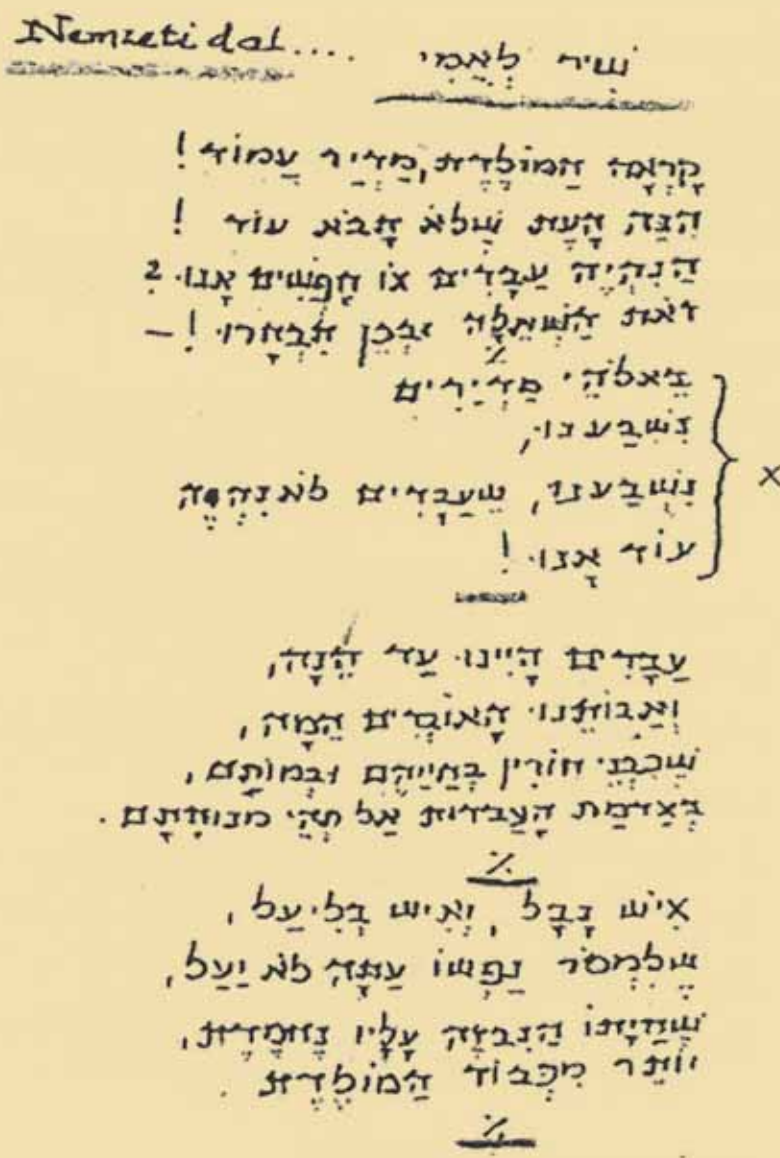 Nemzeti dal.... שִׁיר לְאֻמִּי
קָרְאָה הַמּוֹלֶדֶת, מַדְיַר עֲמוֹד!
הִנֵּה הָעֵת שֶׁלֹּא תָּבֹא עוֹד!
הֲנִהְיֶה עֲבָדִים אוֹ חָפְשִׁים אָנוּ?
זֹאת הַשְּׁאֵלָה וּבְכֵן תִּבְחָרוּ! –
בֵּאלֹהֵי מַדְיָרִים
נִשְׁבַּענוּ,
נִשְׁבַּענוּ, שֶׁעֲבָדִים לֹא נִהְיֶה
עוֹד אָנוּ!
x
עֲבָדִים הָיִינוּ עַד הֵנָּה,
וַאֲבוֹתֵינוּ הָאוֹבְדִים הֵמָּה,
שֶׁכִּבְנֵי חוֹרִין בְּחַיֵּיהֶם וּבְמוֹתָם,
בְּאַדְמַת הָעַבְדוּת אַל תְּהִי מְנוּחָתָם.
٪
אִישׁ נָבָל, וְאִישׁ בְּלִיַעַל,
שֶׁלִּמְסֹר נַפְשׁוֹ עַתָּה לֹא יַעַל,
שֶׁחַיָּתוֹ הַנִּבְזָה עָלָיו נֶחֱמֶדֶת,
יוֹתֵר מִכְּבוֹד הַמּוֹלֶדֶת.
٪